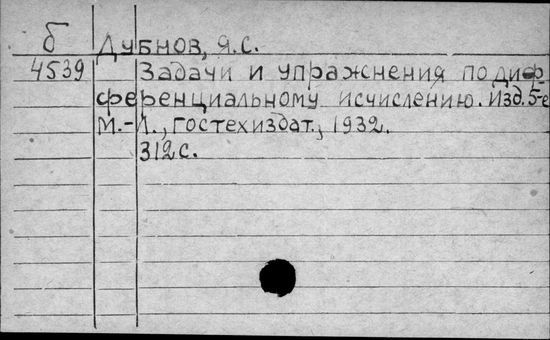 б Дубнов, Я.С.
4539 Задачи и упражнения по диф-
ференциальному исчислению. Изд. 5-е
М.-Л., Гостехиздат., 1932.
312 с.